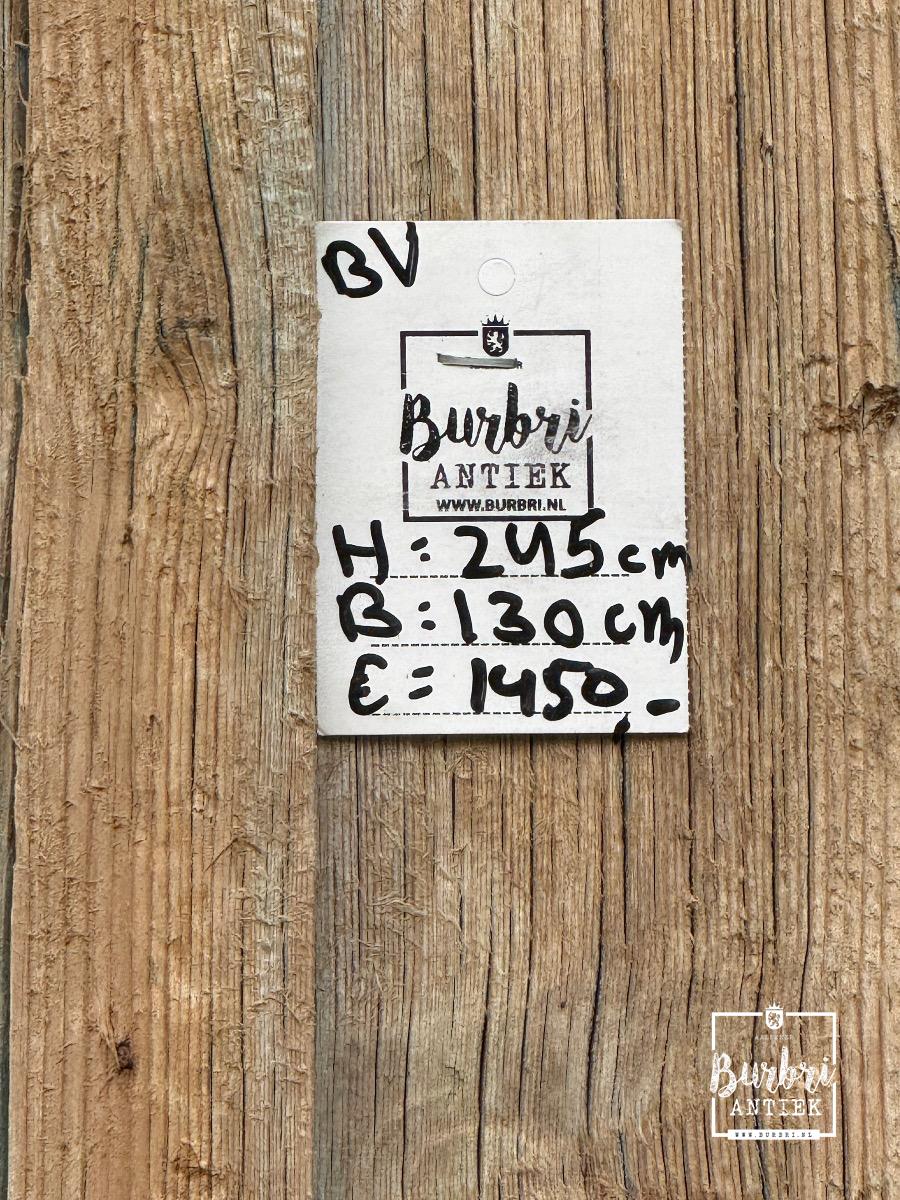 BV
Burbri
ANTIEK
WWW.BURBRI.NL
H: 245cm
B: 130cm
€= 1450,-
Burbri
ANTIEK
WWW.BURBRI.NL